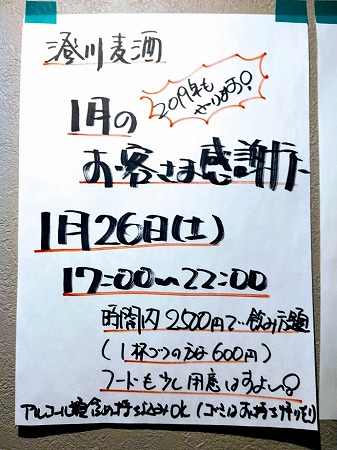 澄川麦酒
2019年も
やります!
1月の
お客さま感謝デー
1月26日(土)
17:00〜22:00
時間内2500円で飲み放題
(1杯づつの方は600円)
フードも少し用意はすよい。
アルコール類含め持ち込みOK(ゴミはお持ち帰りを!)